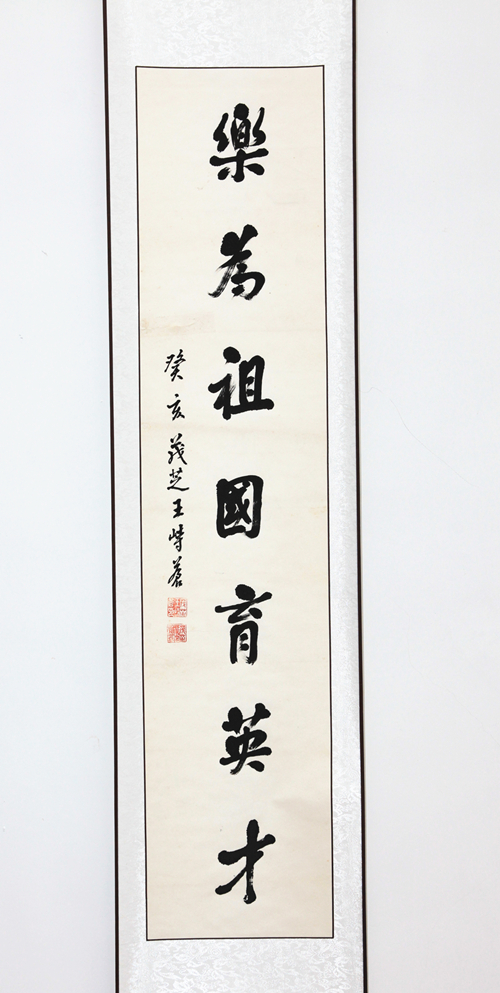 樂為祖國育英才
癸亥 義芝王峙蒼